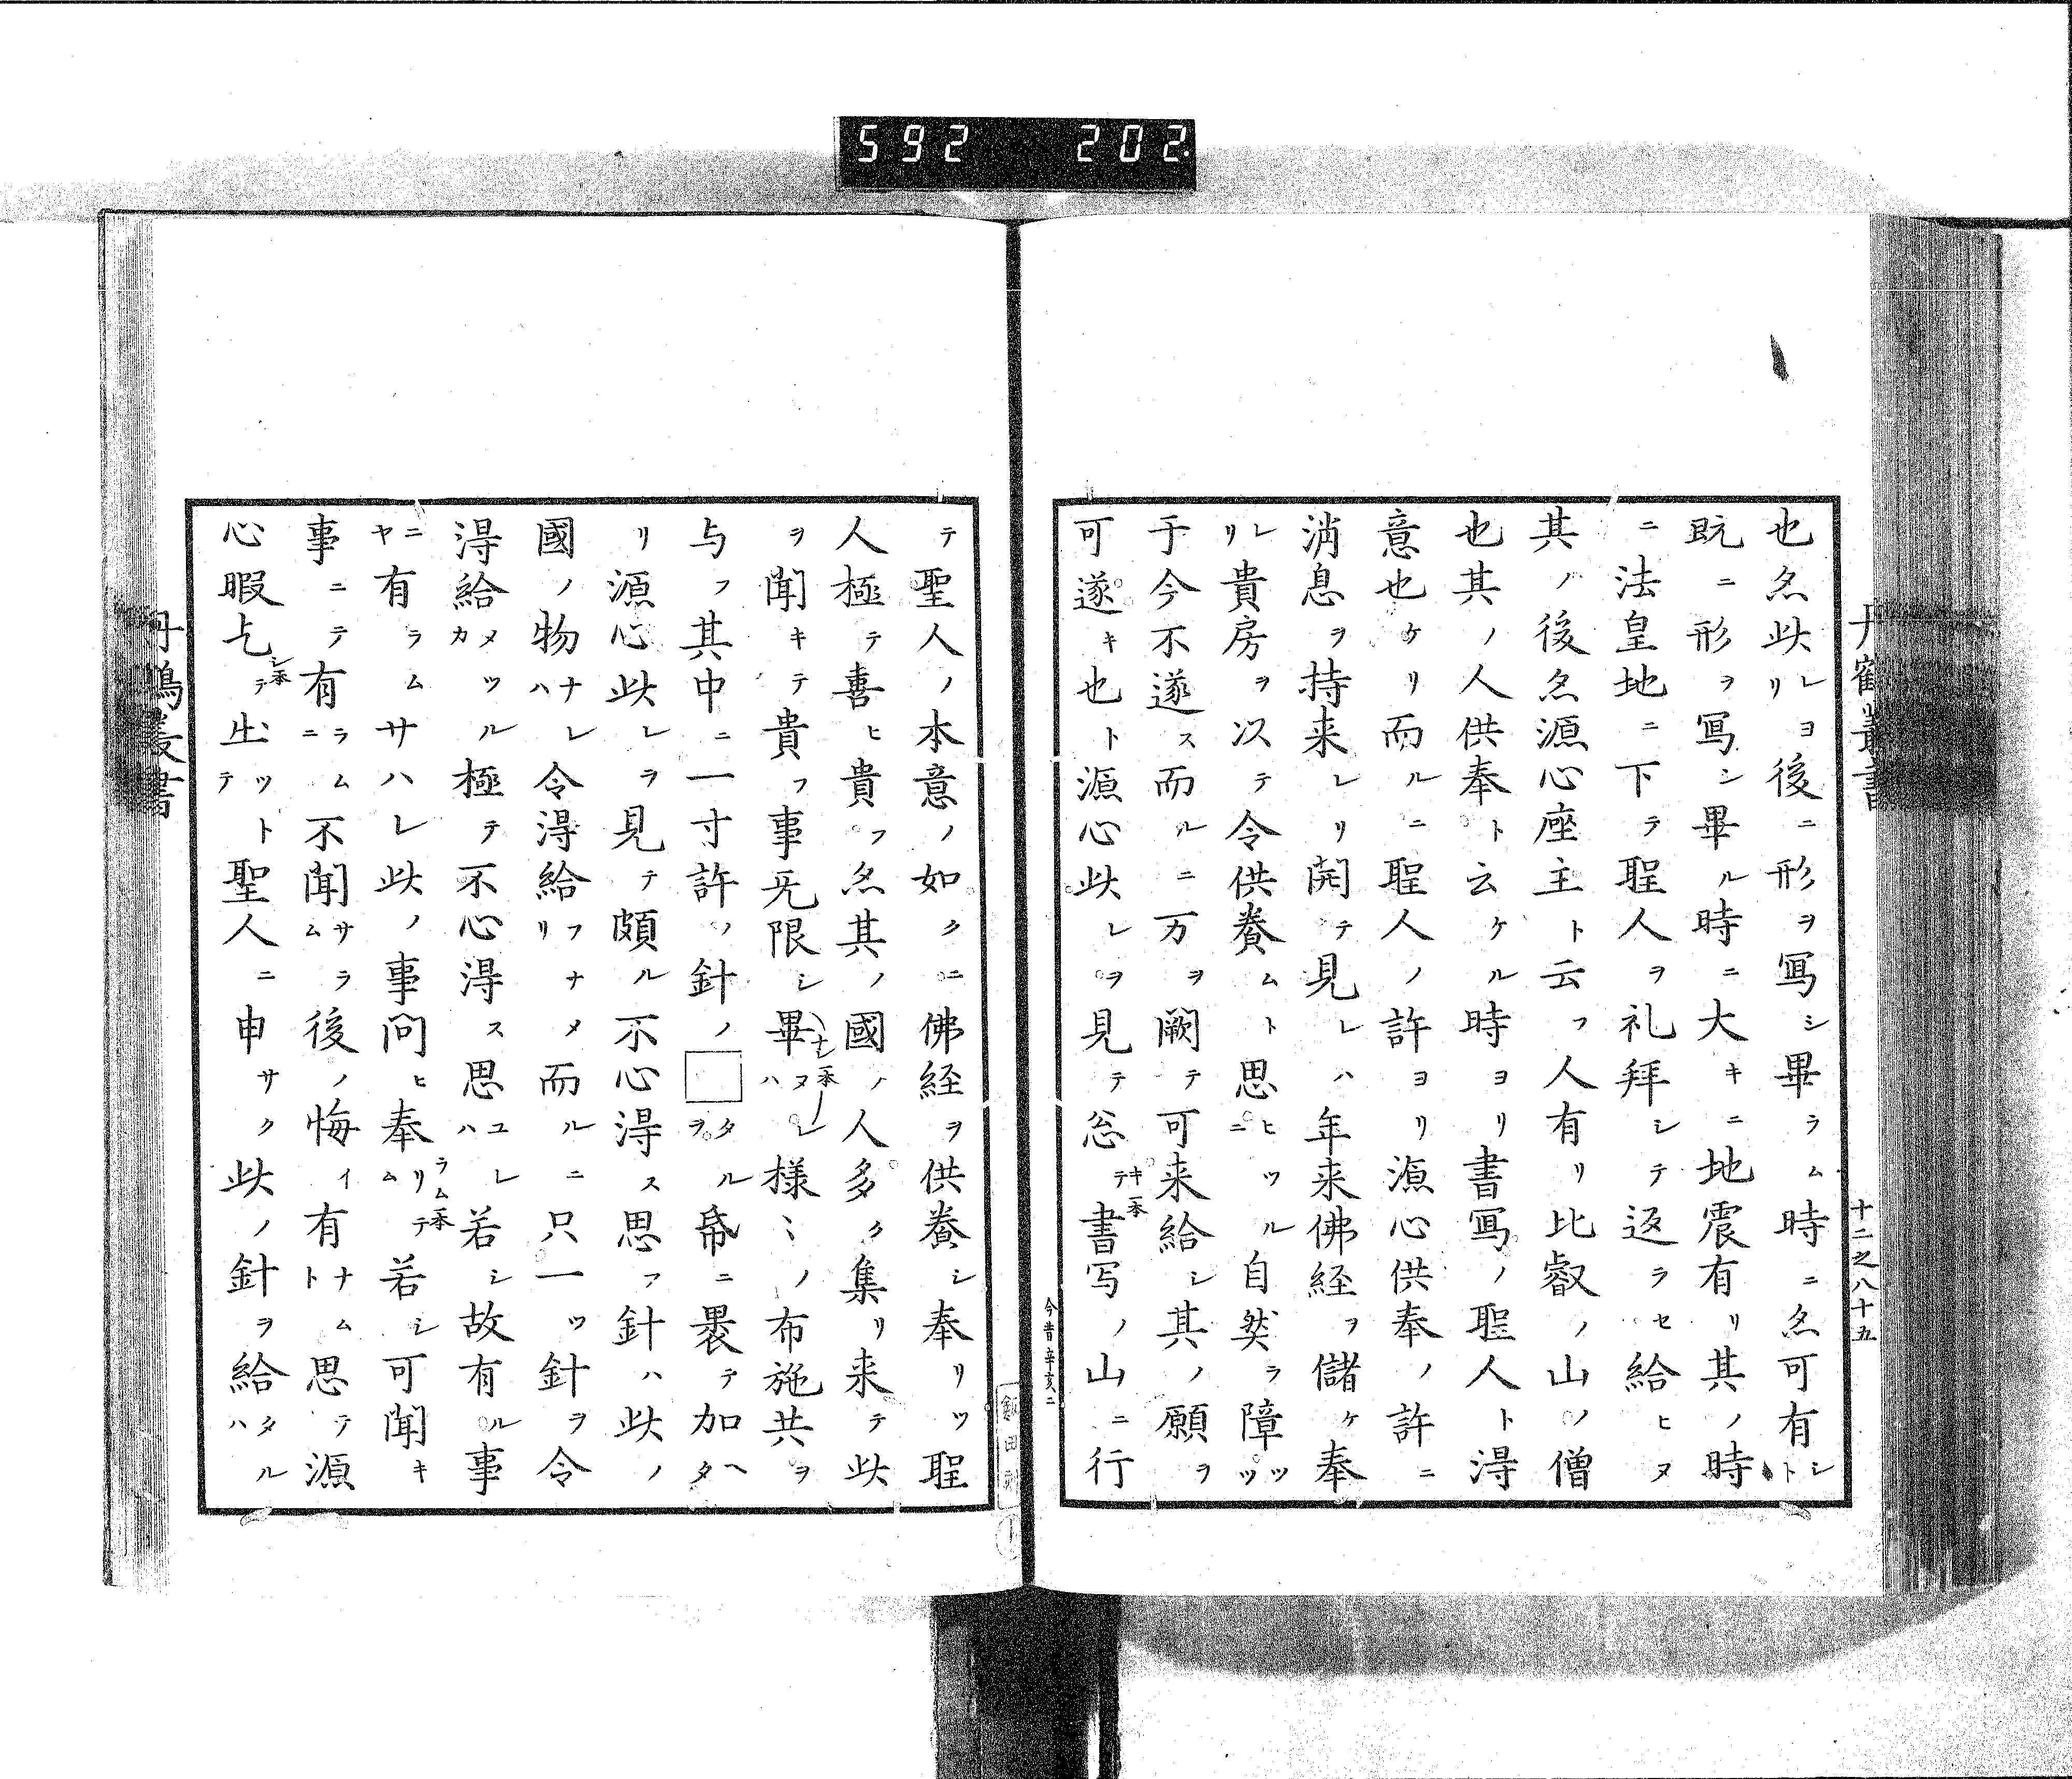 592 202
丹鶴叢書
十二之八十五
也亦此レヨリ後ニ形ヲ写シ畢ラム時ニ亦可有シト
既ニ形ヲ写シ畢ル時ニ大キニ地震有リ其ノ時
ニ法皇地ニ下テ聖人ヲ礼拜シテ返ラセ給ヒヌ
其ノ後亦源心座主ト云フ人有リ比叡ノ山ノ僧
也其ノ人供奉ト云ケル時ヨリ書写ノ聖人ト得
意也ケリ而ルニ聖人ノ許ヨリ源心供奉ノ許ニ
消息ヲ持来レリ開テ見レハ年来佛経ヲ儲ケ奉
レリ貴房ヲ以テ令供養ムト思ヒツルニ自然ラ障ツツ
于今不遂ス而ルニ万ヲ闕テ可来給シ其ノ願ヲ
可遂キ也ト源心此レヲ見テ忩テキ一本書写ノ山ニ行
今昔 辛亥ニ
テ聖人ノ本意ノ如クニ佛経ヲ供養シ奉リツ聖
人極テ喜ヒ貴フ亦其ノ國ノ人多ク集リ来テ此
ヲ聞キテ貴フ事无限シ畢ヌレハ様〻ノ布施共ヲ
与フ其中ニ一寸許ノ針ノ□タルヲ帋ニ褁テ加ヘタ
リ源心此レヲ見テ頗ル不心得ス思フ針ハ此ノ
國ノ物ナレハ令得給フナメリ而ルニ只一ツ針ヲ令
得給メツルカ極テ不心得ス思ユレハ若シ故有ル事
ニヤ有ラムサハレ此ノ事問ヒ奉リテムラム一本若シ可聞キ
事ニテ有ラムニ不聞サラム後ノ悔イ有ナムト思テ源
心暇乞シ一本テ出ツトテ聖人ニ申サク此ノ針ヲ給タルハ
丹鶴叢書